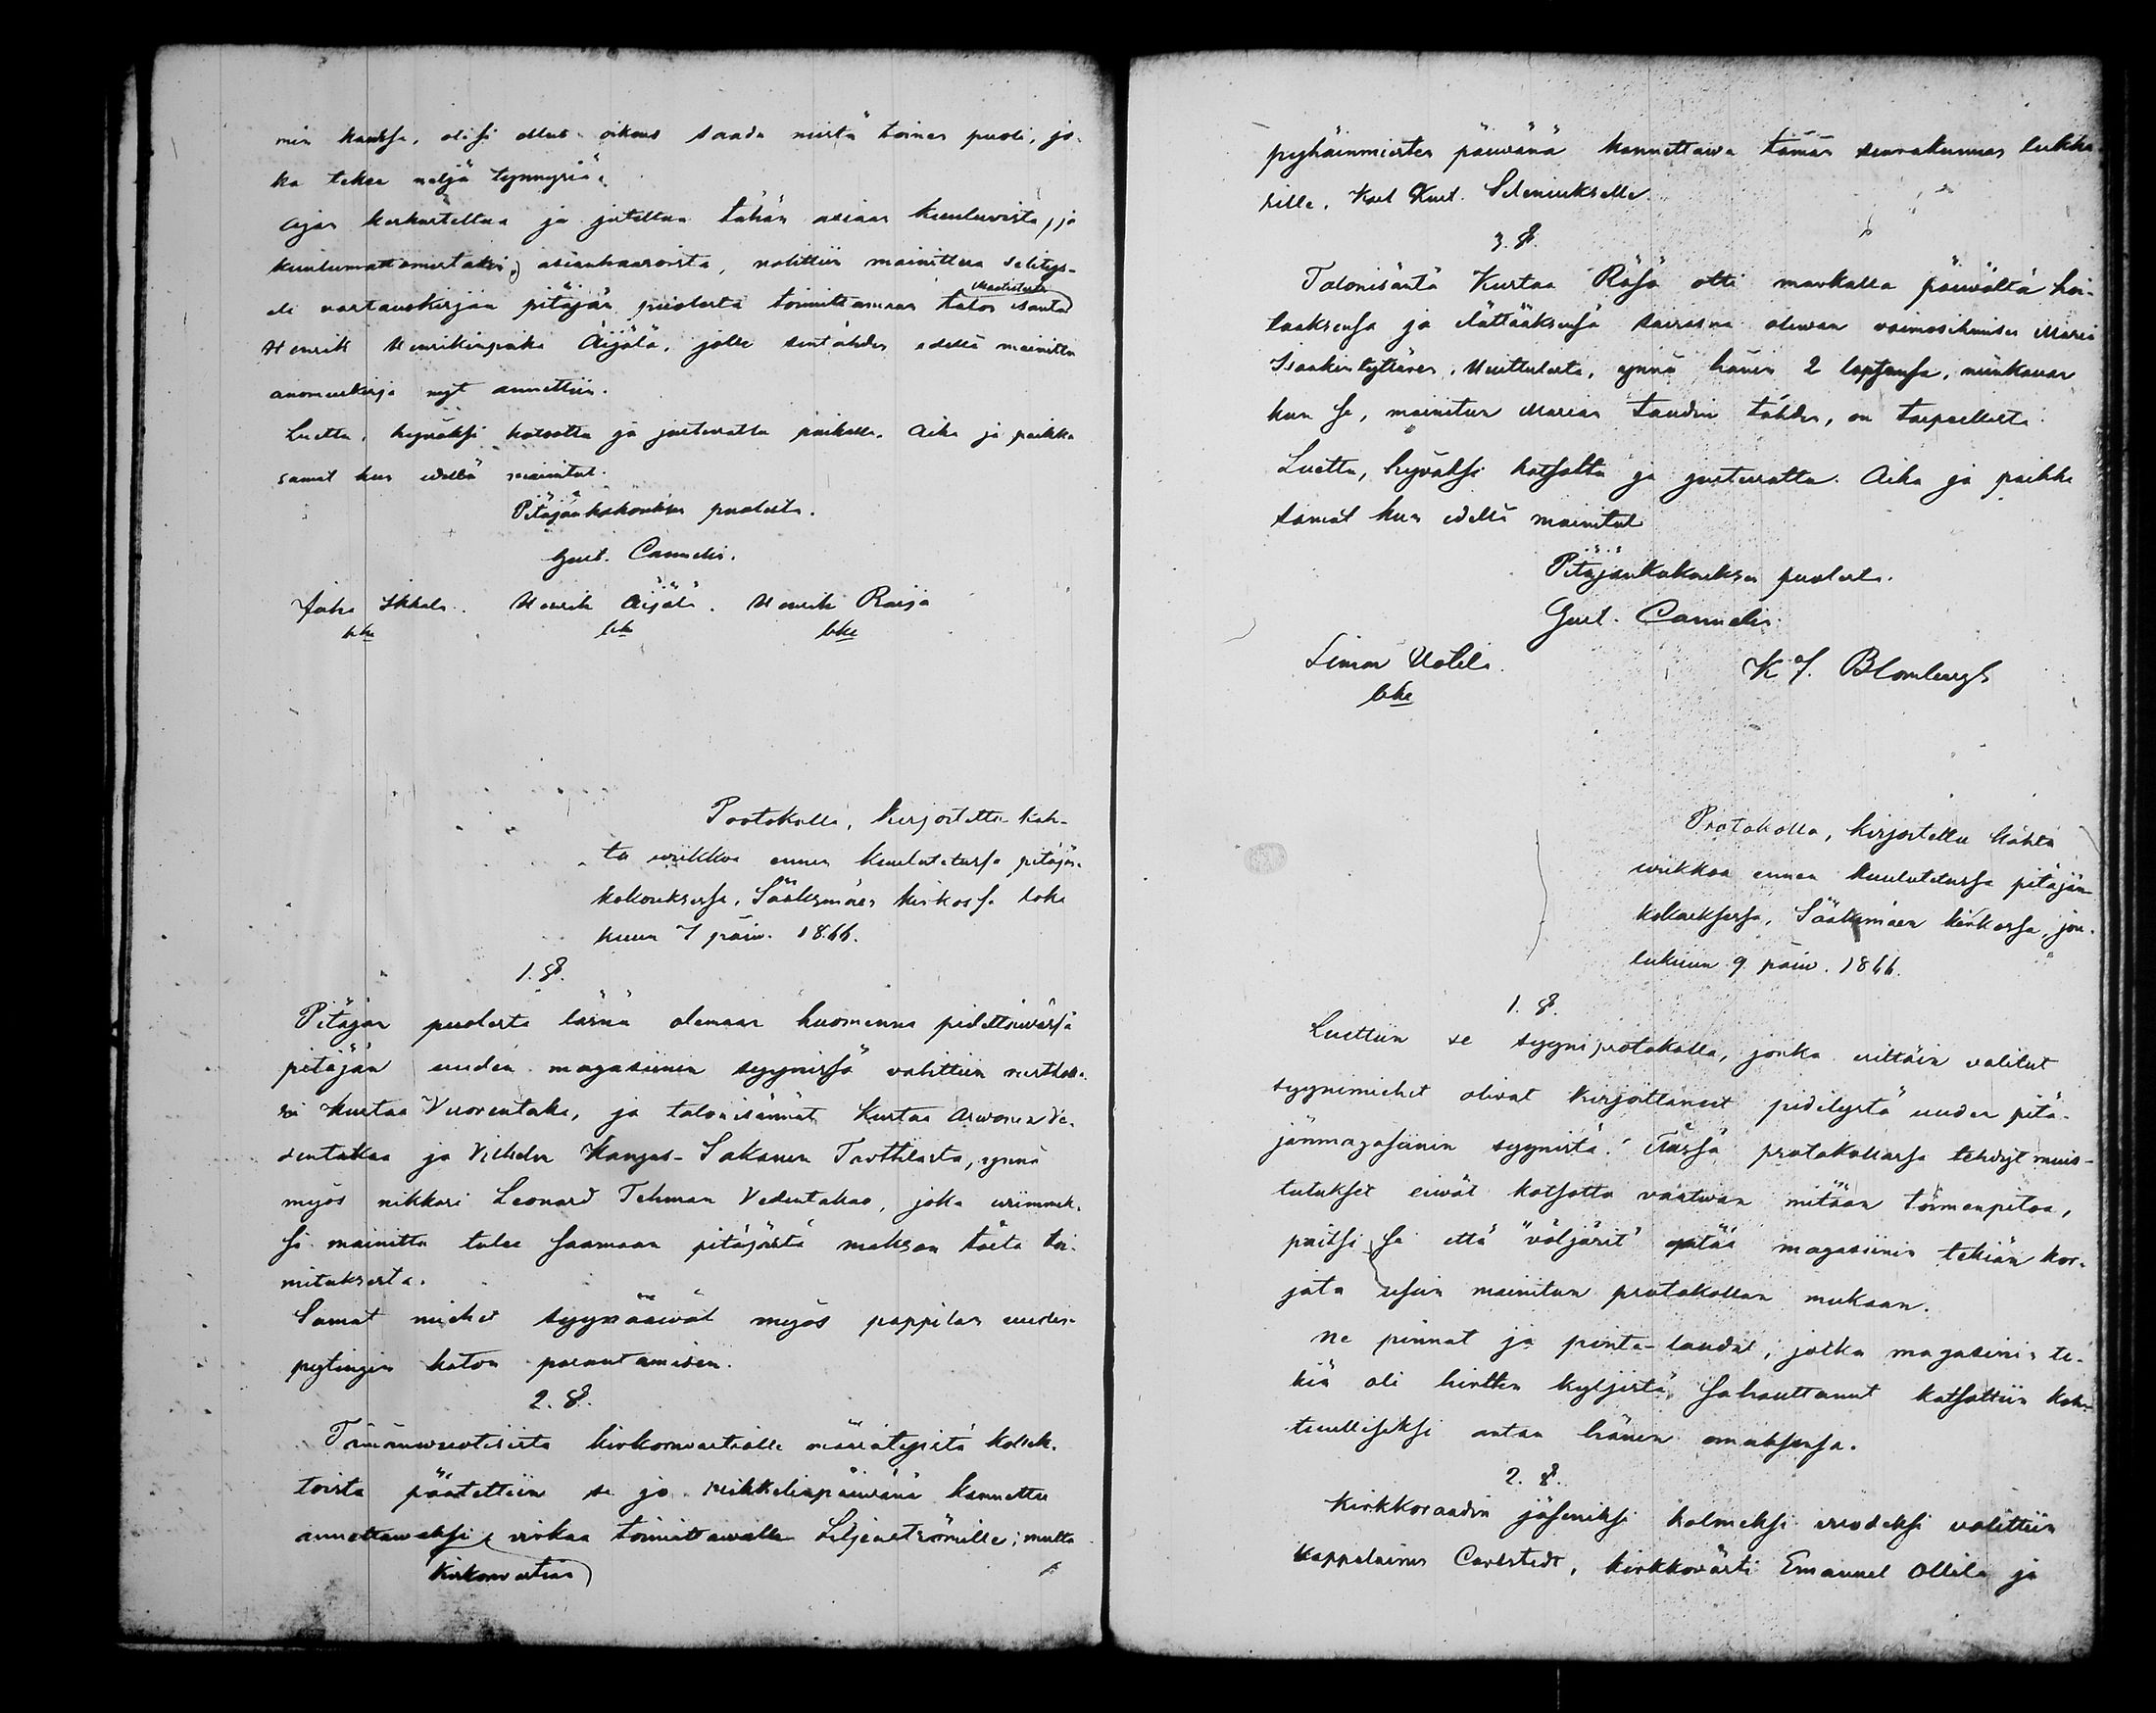 min kautta, olisi ollut oikeus saada niistä toinen puoli, jo-
ka tekee neljä tynnyriä.
Ajan keskusteltua ja juteltua tähän asiaan kuuluvista, ja
kuulumattomistakin, asianhaaroista, valittiin mainittua selitys-
eli vastauskirjaa pitäjän puolesta toimittamaan talon isäntä
Henrik Henrikinpoika Äijälä, jolle sentähden edellä mainittu
anomuskirja nyt annettiin.
Luettu, hyväksi katsottu ja justeerattu paikalla. Aika ja paikka
samat kun edellä mainitut.
Pitäjänkokouksen puolesta.
Gust. Cannelin.
Juha Ikkala. Henrik Äijälä. Henrik Raija
lke lke lke
Protokolla, kirjoitettu kah-
ta wiikkoa ennen kuulutetussa pitäjän-
kokouksessa, Sääksmäen kirkossa loka
kuun 7 päiv. 1866.
1. §.
Pitäjän puolesta läsnä olemaan huomenna pidettäwässä
pitäjän uuden magasiinin syynissä valittiin
Kustaa Vuorentaka, ja talonisännät Kustaa Arvonen Ve-
dentakaa ja Vilhelm Kangas-Sakanen Tarttilasta, ynnä
myös nikkari Leonard Tehman Vedentakaa, joka wiimmek-
si mainittu tulee saamaan pitäjästä maksun tästä toi-
mituksesta.
Samat miehet syynääwät myös pappilan uuden-
pytingin katon parantamisen.
2. §.
Tämänwuotisesta kirkonvartialle määrätystä kollek-
toista päätettiin se jo mikkelinpäiwänä kannettu
annettawaksi virkaa toimittawalle Liljeströmille; mutta
Kirkonvartian
pyhäinmiesten päiwänä kannettawa tämän seurakunnan lukka-
rille, Karl Gust. Seleniukselle.
3. §.
Talonisäntä Kustaa Räsä otti markalla päiwältä hoi-
taaksensa ja elättääksensä sairasna olewan vaimoihmisen Maria
Isaakintyttären, Huittulasta, ynnä hänen 2 lastansa, niinkauan
kun se, mainitun Marian taudin tähden, on tarpeellista.
Luettu, hyväksi katsottu ja justeerattu. Aika ja paikka
samat kun edellä mainitut
Pitäjänkokouksen puolesta.
Gust. Cannelin.
Simon Uotila. K J. Blomberg
lke
Protokolla, kirjoitettu kahta
wiikkoa ennen kuulutetussa pitäjän-
kokouksessa, Sääksmäen kirkossa, jou-
lukuun 9 päiv. 1866.
1. §.
Luettiin se syyniprotokolla, jonka erittäin valitut
syynimiehet olivat kirjoittaneet pidetystä uuden pitä-
jänmagasiinin syynistä. Tässä protokollassa tehdyt muis-
tutukset eiwät katsottu vaativan mitään toimenpitoa,
paitsi se että "väljärit" pitää magasiinin tekiän kor-
jata usein mainitun protokollan mukaan.
Ne pinnat ja pinta-laudat, jotka magasiinin te-
kiä oli hirtten kyljistä sahauttanut katsottiin koh-
tuulliseksi antaa hänen omaksensa.
2. §.
Kirkkoraadin jäseniksi kolmeksi wuodeksi valittiin
Kappalainen Carlstedt, kirkkovärti Emanuel Ollila ja